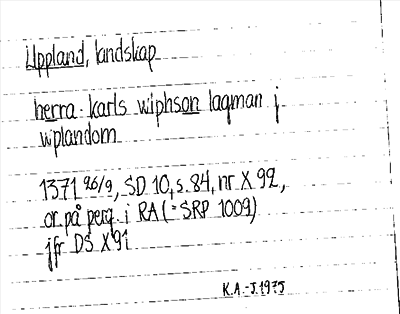 Uppland, landskap
herra karls wlphson laqman j
wplandom
1371 26/9, SD 10, s. 84, nr X 92,
or. på perg. i RA (= SRP 1009)
jfr DS X 91
K.A.-J. 1975